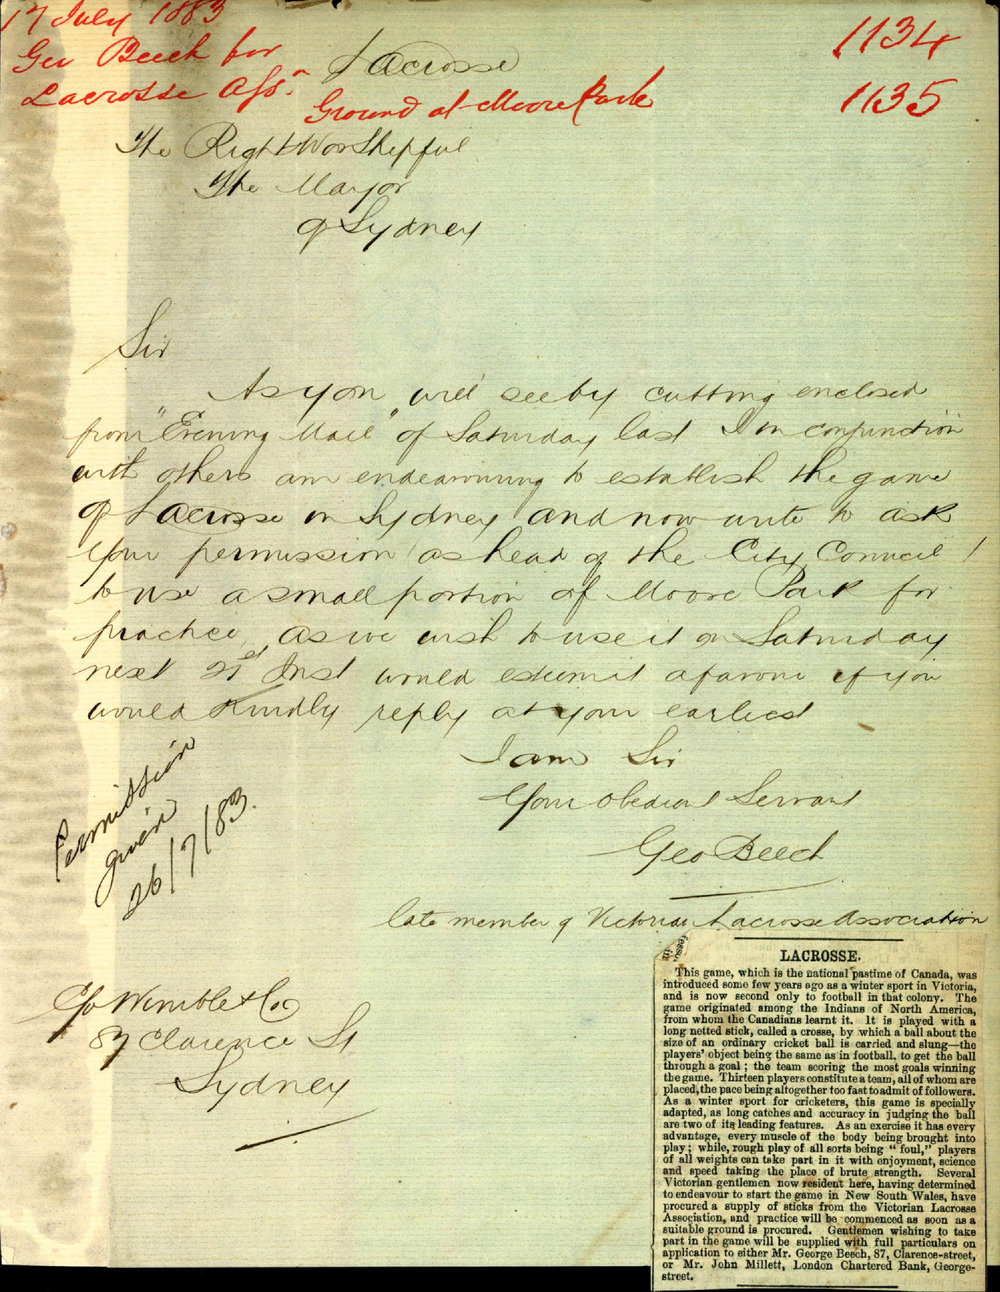 17 July 1883
Geo Beech for
Lacrosse Assn.
Lacrosse
Ground at Moore Park
1134
1135
The Right Worshipful
The Mayor
of Sydney
Sir
As you will see by cutting enclosed
from "Evening Mail" of Saturday last I in conjunction
with others am endeavouring to establish the game
of Lacrosse in Sydney and now write to ask
your permission (as head of the City Council)
to use a small portion of Moore Park for
practice, as we wish to use it on Saturday
next 21st Inst would esteem it a favour if you
would kindly reply at your earliest
I am Sir
Your obedient Servant
Geo Beech
late member of Victorian Lacrosse Association
Permission
given
26/7/83.
C/o Wimble & Co
87 Clarence St
Sydney
LACROSSE.
This game, which is the national pastime of Canada, was
introduced some few years ago as a winter sport in Victoria,
and is now second only to football in that colony. The
game originated among the Indians of North America,
from whom the Canadians learnt it. It is played with a
long netted stick, called a crosse, by which a ball about the
size of an ordinary cricket ball is carried and slung—the
players' object being the same as in football, to get the ball
through a goal; the team scoring the most goals winning
the game. Thirteen players constitute a team, all of whom are
placed, the pace being altogether too fast to admit of followers.
As a winter sport for cricketers, this game is specially
adapted, as long catches and accuracy in judging the ball
are two of its leading features. As an exercise it has every
advantage, every muscle of the body being brought into
play; while, rough play of all sorts being "foul," players
of all weights can take part in it with enjoyment, science
and speed taking the place of brute strength. Several
Victorian gentlemen now resident here, having determined
to endeavour to start the game in New South Wales, have
procured a supply of sticks from the Victorian Lacrosse
Association, and practice will be commenced as soon as a
suitable ground is procured. Gentlemen wishing to take
part in the game will be supplied with full particulars on
application to either Mr. George Beech, 87, Clarence-street,
or Mr. John Millett, London Chartered Bank, George-
street.